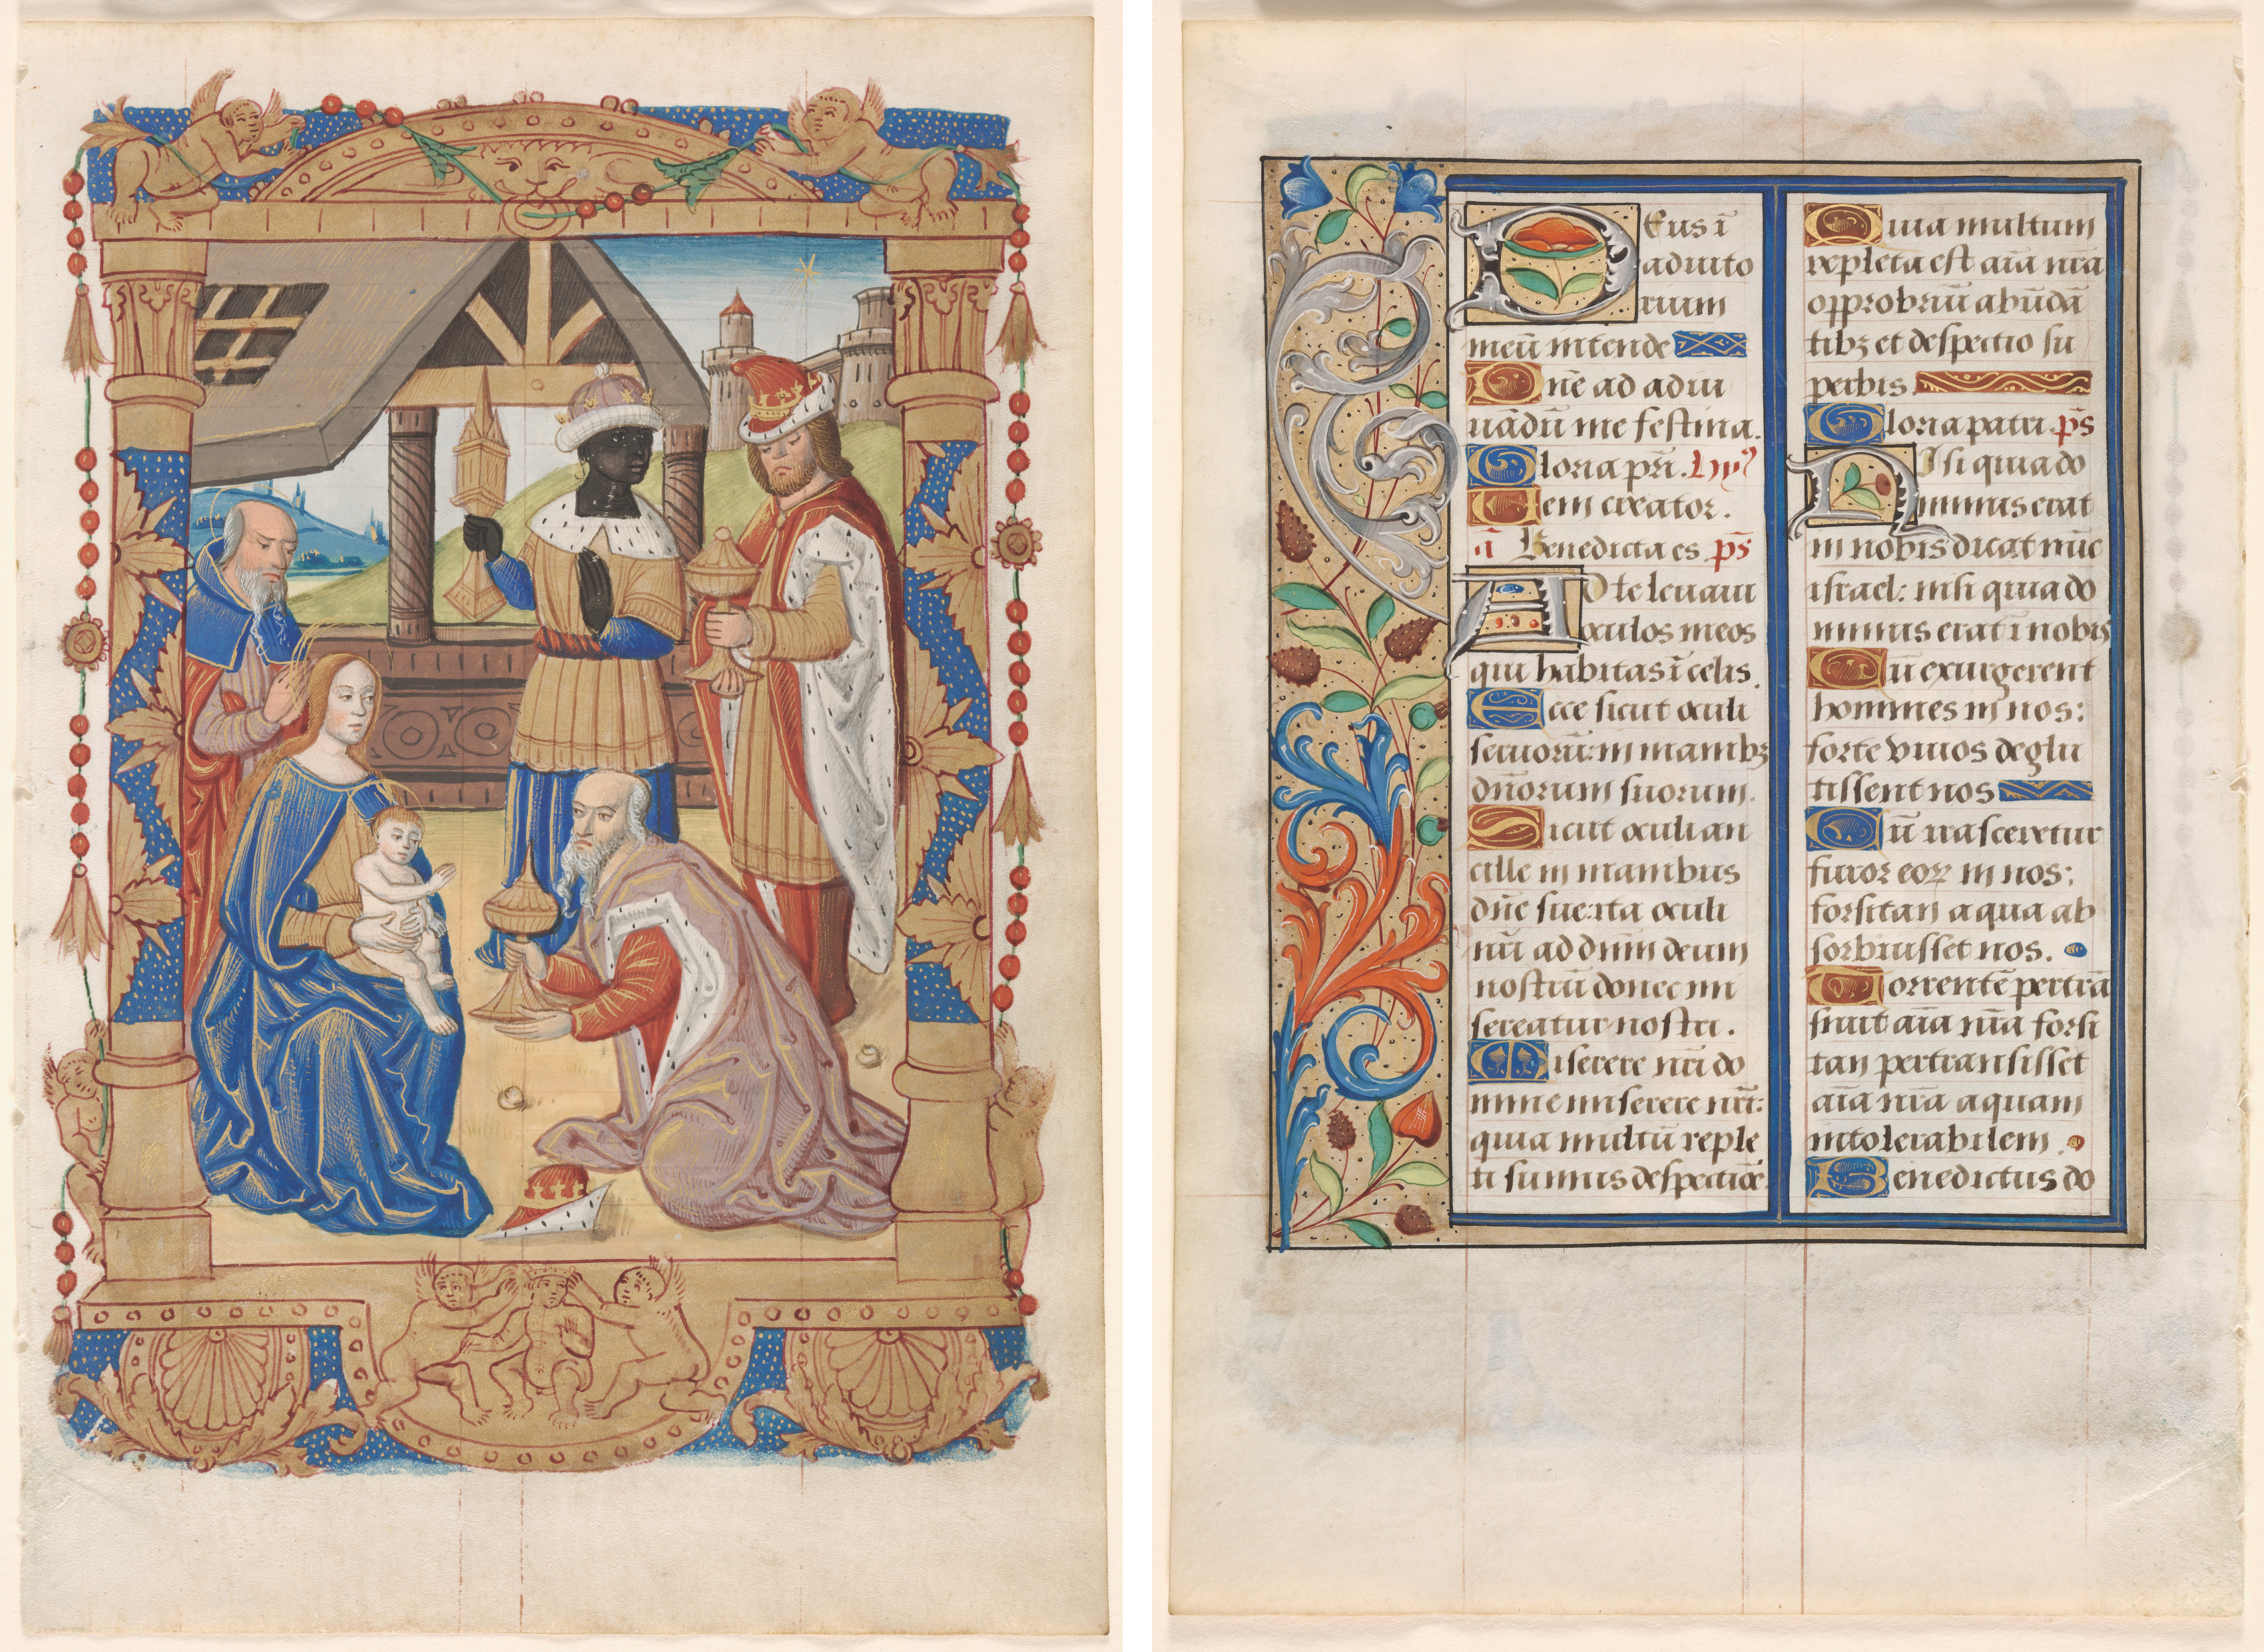 Deus ī
adiuto
rium
meū intende
Dne ad adiu
uādū me festina.
Gloria pr̄i. hyꝰ
Veni creator.
ā Benedicta es p̄s
AD te leuaui
oculos meos
qui habitas ī celis.
Ecce sicut oculi
seruorū: in manibꝫ
dn̄orum suorum.
Sicut oculi an
cille in manibus
dn̄e sue: ita oculi
nr̄i ad dn̄m deum
nostrū donec mi
sereatur nostri.
Miserere nr̄i do
mine miserere nr̄i:
quia multū reple
ti sumus despectiōe
Quia multum
repleta est aīa nr̄a
opprobriū abūdā
tibꝫ et despectio su
perbis
Gloria patri p̄s
NIsi quia do
minus erat
in nobis dicat nūc
israel: nisi quia do
minus erat ī nobis
Cū exurgerent
homines in nos:
forte viuos deglu
tissent nos
Cū irasceretur
furor eoꝝ in nos:
forsitan aqua ab
sorbuisset nos.
Torrentē pertrā
siuit aīa nr̄a forsi
tan pertransisset
aīa nr̄a aquam
intolerabilem.
Benedictus do